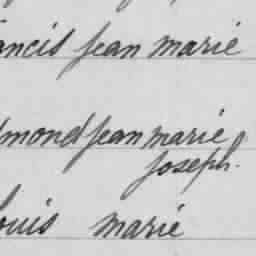 ancis Jean marie
dmond Jean marie
Joseph.
ouis marie